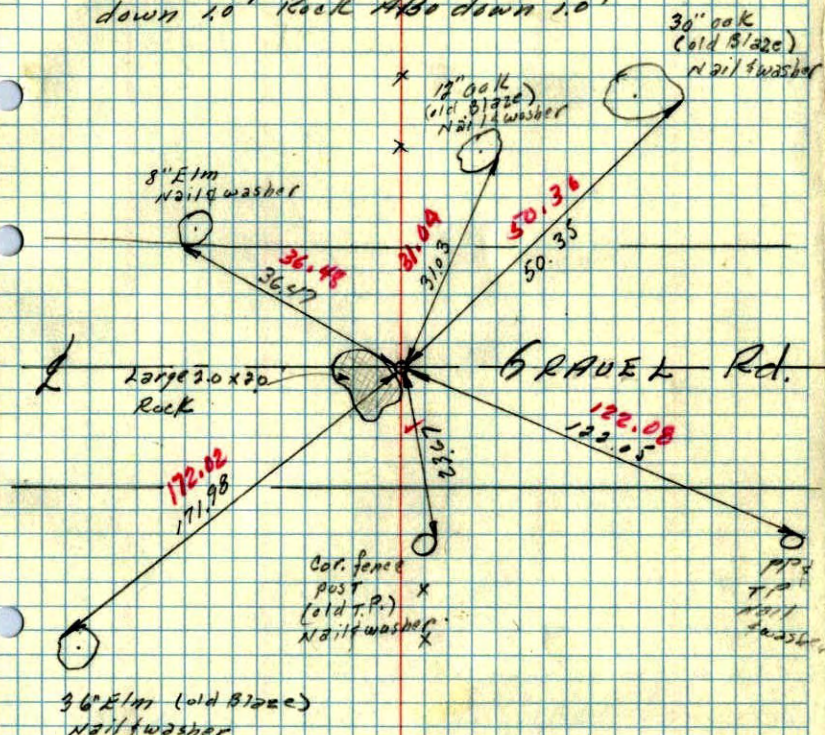 down 1.0' Rock Also down 1.0'
30" oak
(old Blaze)
Nail & washer
12" oak
(old Blaze)
Nail & washer
8" Elm
Nail & washer
36.48
36.47
31.04
31.03
50.36
50.35
Large 2.0 x 2.0
Rock
GRAVEL Rd.
122.08
122.05
172.02
171.98
23.67
Cor. fence
post
(old T.P.)
Nail & washer
PP &
TP
Nail
& washer
36" Elm (old Blaze)
Nail & washer